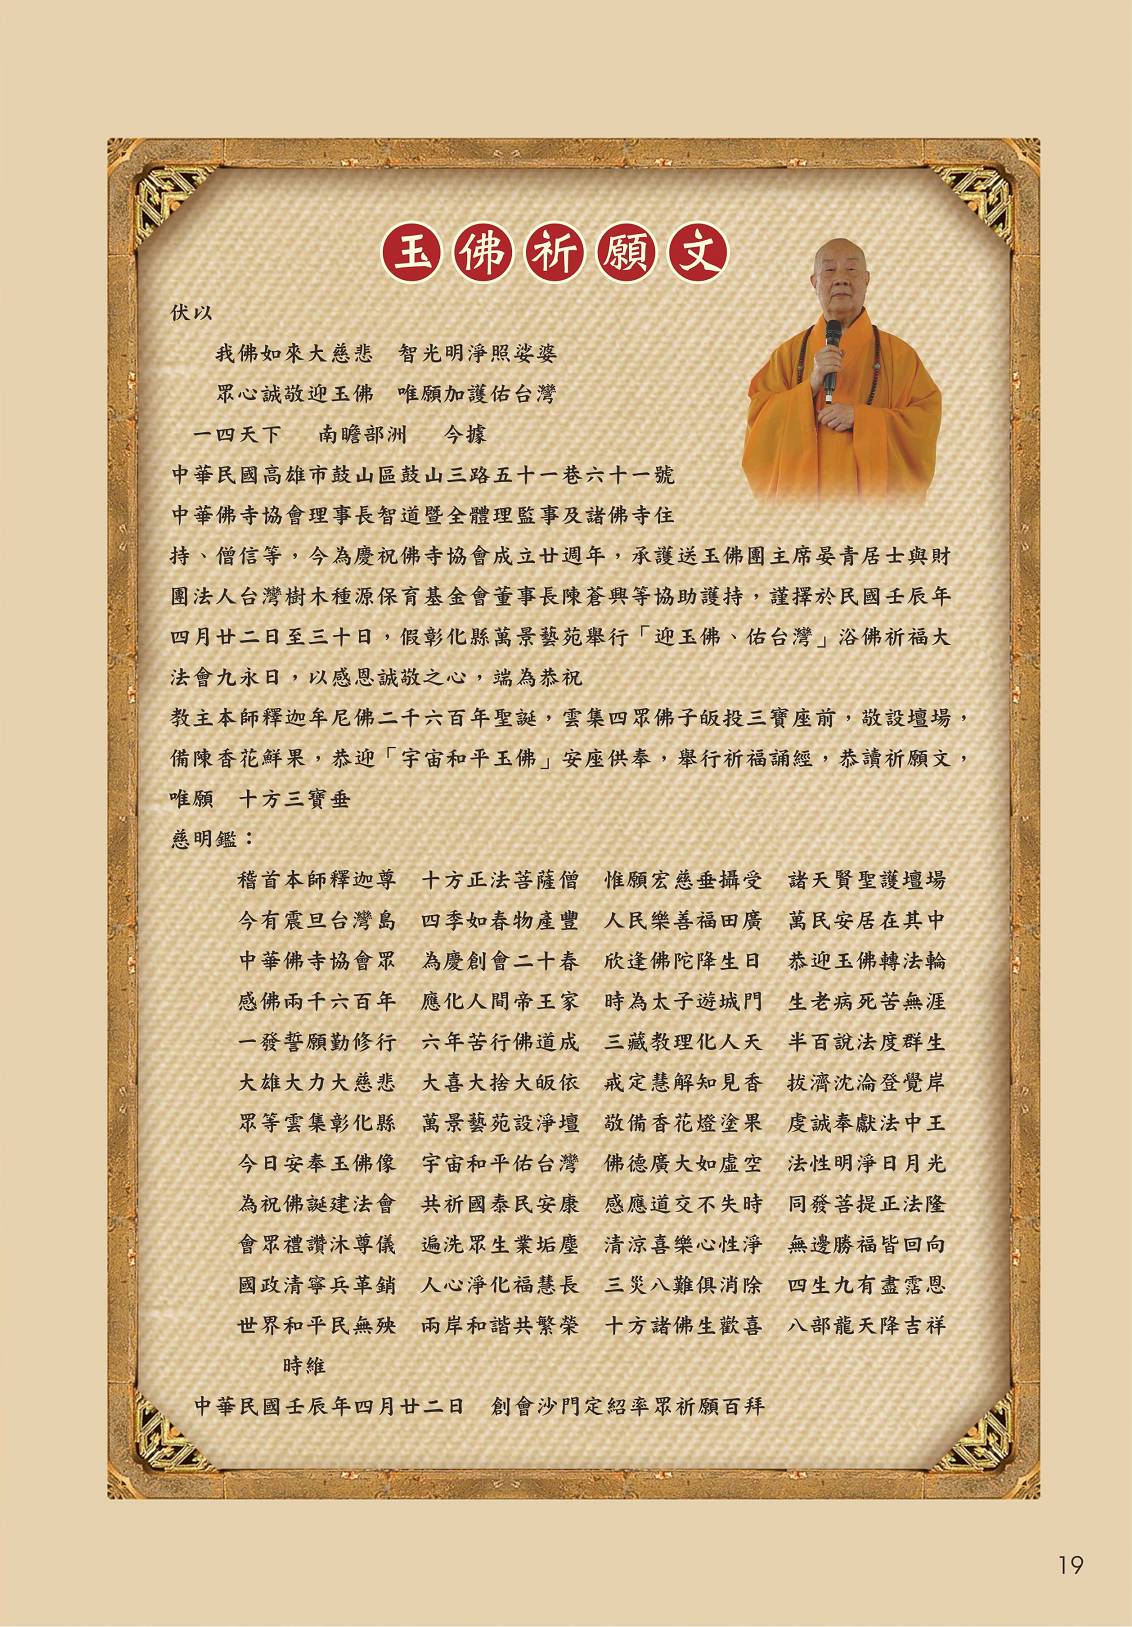 玉佛祈願文
伏以
我佛如來大慈悲　智光明淨照娑婆
眾心誠敬迎玉佛　唯願加護佑台灣
一四天下　南瞻部洲　今據
中華民國高雄市鼓山區鼓山三路五十一巷六十一號
中華佛寺協會理事長智道暨全體理監事及諸佛寺住
持、僧信等，今為慶祝佛寺協會成立廿週年，承護送玉佛團主席晏青居士與財
團法人台灣樹木種源保育基金會董事長陳蒼興等協助護持，謹擇於民國壬辰年
四月廿二日至三十日，假彰化縣萬景藝苑舉行「迎玉佛、佑台灣」浴佛祈福大
法會九永日，以感恩誠敬之心，端為恭祝
教主本師釋迦牟尼佛二千六百年聖誕，雲集四眾佛子皈投三寶座前，敬設壇場，
備陳香花鮮果，恭迎「宇宙和平玉佛」安座供奉，舉行祈福誦經，恭讀祈願文，
唯願　十方三寶垂
慈明鑑：
稽首本師釋迦尊　十方正法菩薩僧　惟願宏慈垂攝受　諸天賢聖護壇場
今有震旦台灣島　四季如春物產豐　人民樂善福田廣　萬民安居在其中
中華佛寺協會眾　為慶創會二十春　欣逢佛陀降生日　恭迎玉佛轉法輪
感佛兩千六百年　應化人間帝王家　時為太子遊城門　生老病死苦無涯
一發誓願勤修行　六年苦行佛道成　三藏教理化人天　半百說法度群生
大雄大力大慈悲　大喜大捨大皈依　戒定慧解知見香　拔濟沈淪登覺岸
眾等雲集彰化縣　萬景藝苑設淨壇　敬備香花燈塗果　虔誠奉獻法中王
今日安奉玉佛像　宇宙和平佑台灣　佛德廣大如虛空　法性明淨日月光
為祝佛誕建法會　共祈國泰民安康　感應道交不失時　同發菩提正法隆
會眾禮讚沐尊儀　遍洗眾生業垢塵　清涼喜樂心性淨　無邊勝福皆回向
國政清寧兵革銷　人心淨化福慧長　三災八難俱消除　四生九有盡霑恩
世界和平民無殃　兩岸和諧共繁榮　十方諸佛生歡喜　八部龍天降吉祥
時維
中華民國壬辰年四月廿二日　創會沙門定紹率眾祈願百拜
19